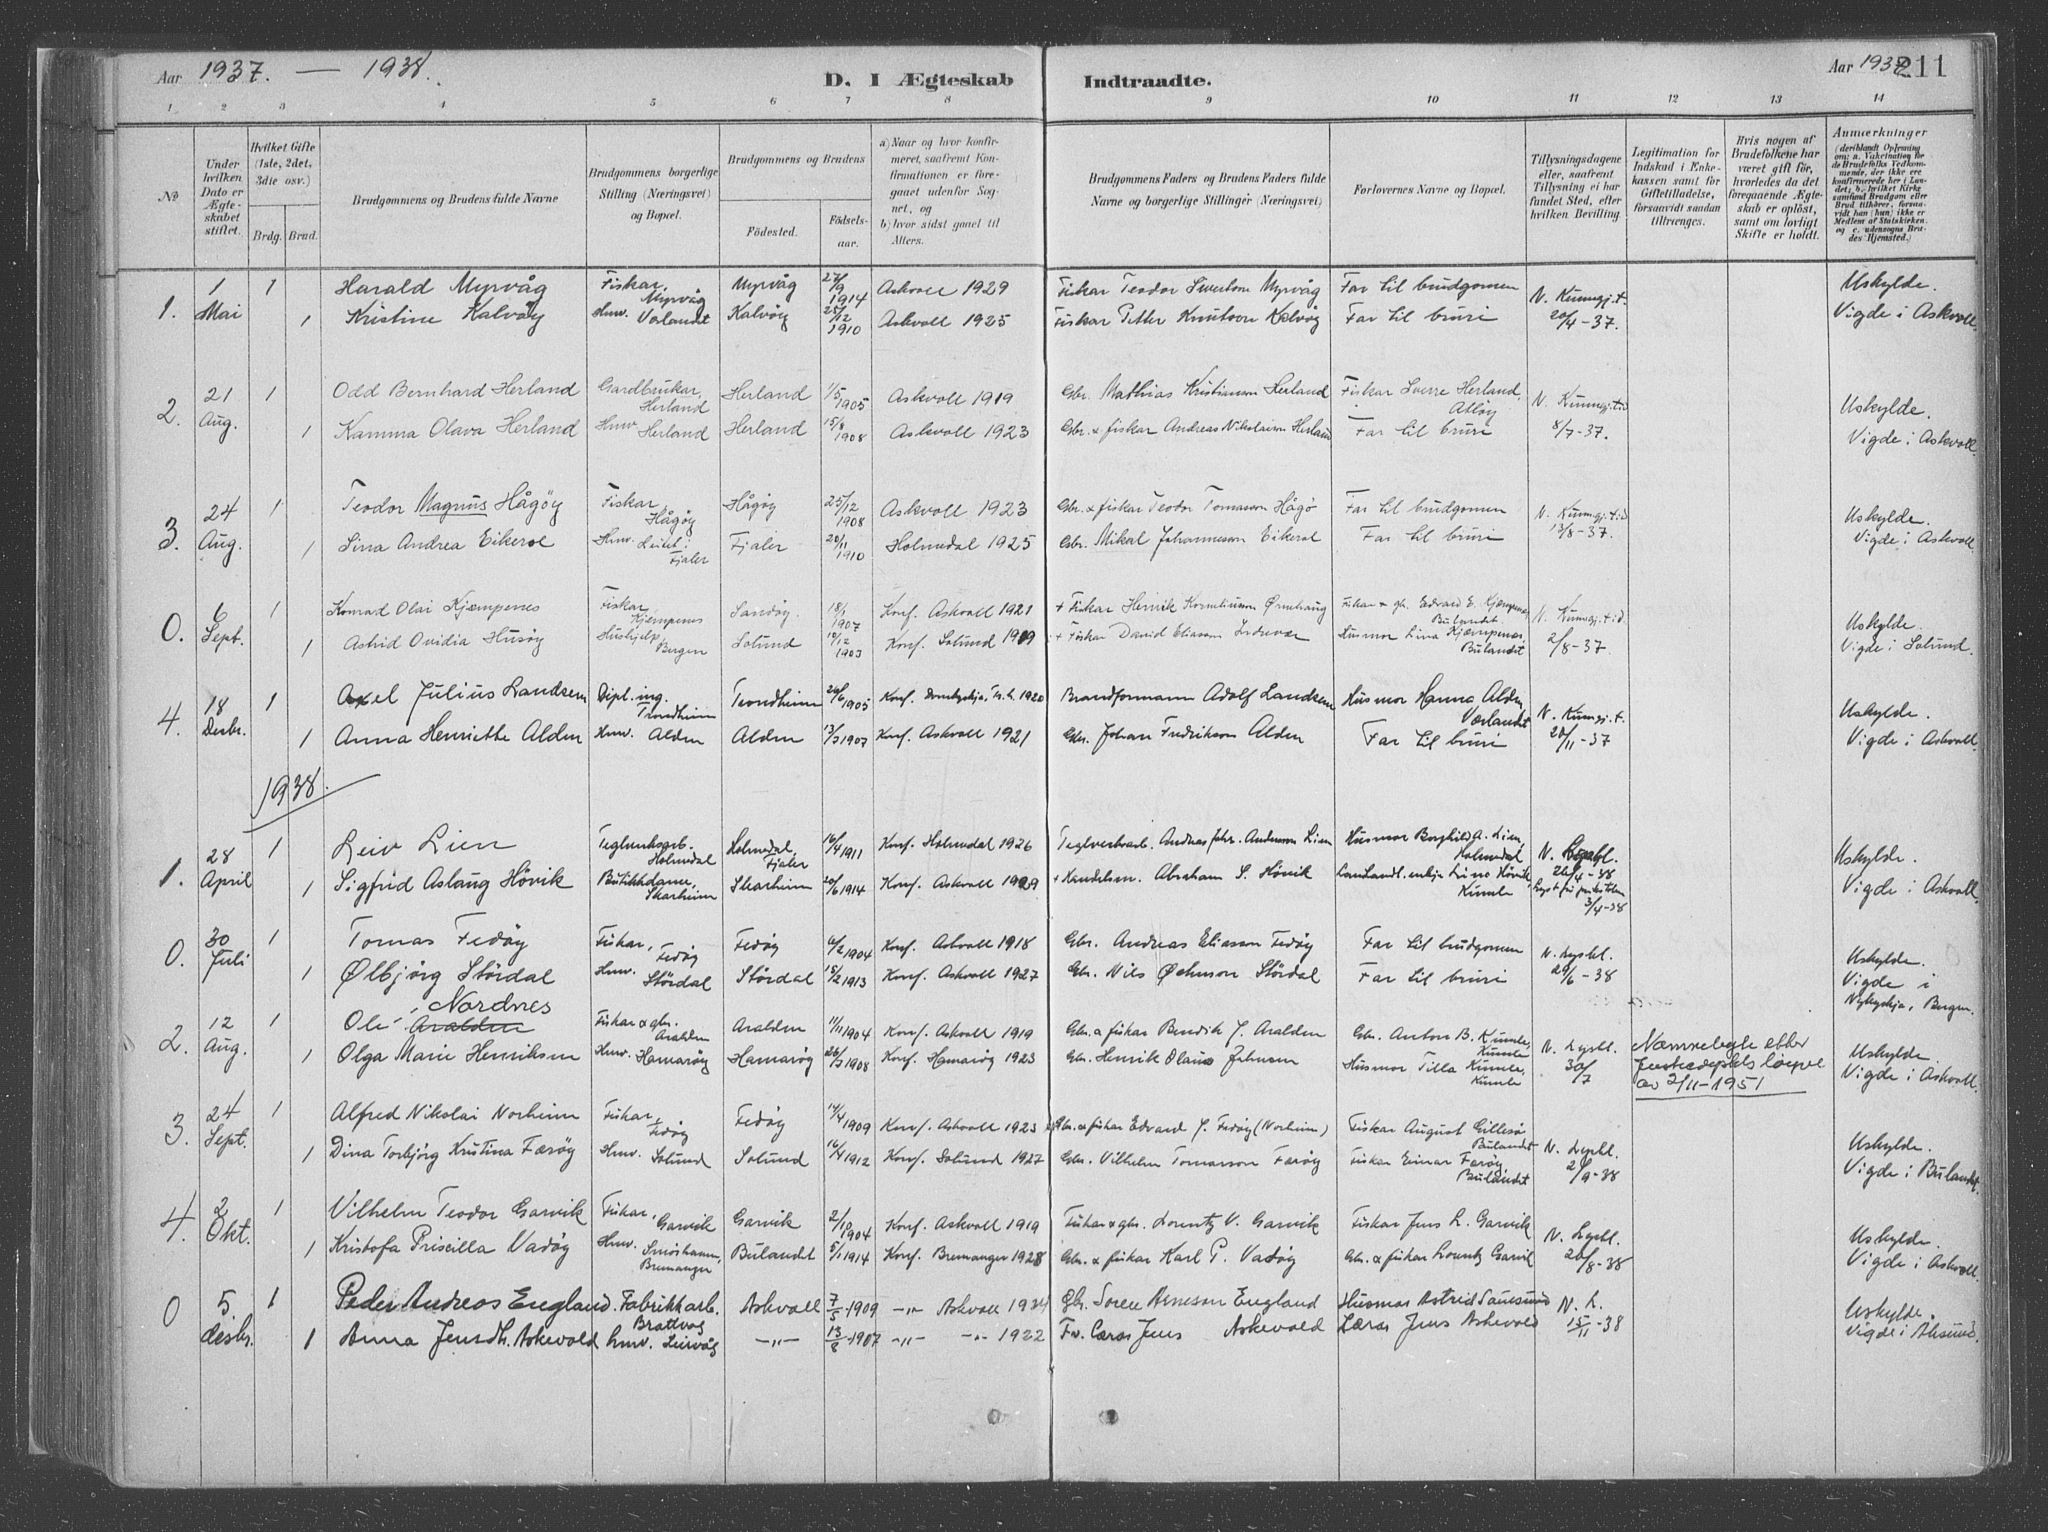 Aar 1937. — 1938.
D. I Ægteskab Indtraadte.
Aar 1937 211
1 2 3 4 5 6 7 8 9 10 11 12 13 14
№
Under hvilken Dato er Ægteskabet stiftet.
Hvilket Gifte (1ste, 2det, 3die osv.)
Brdg. Brud.
Brudgommens og Brudens fulde Navne
Brudgommens borgerlige Stilling (Næringsvei) og Bopæl.
Brudgommens og Brudens
Födested.
Födselsaar.
a) Naar og hvor konfirmeret, saafremt Konfirmationen er foregaaet udenfor Sognet, og
b) hvor sidst gaaet til Alters.
Brudgommens Faders og Brudens Faders fulde Navne og borgerlige Stillinger (Næringsvei)
Forlovernes Navne og Bopæl.
Tillysningsdagene eller, saafremt Tillysning ei har fundet Sted, efter hvilken Bevilling.
Legitimation for Indskud i Enkekassen samt for Giftetilladelse, forsaavidt saadan tiltrænges.
Hvis nogen af Brudefolkene har været gift før, hvorledes da det foregaaende Ægteskab er oplöst, samt om lovligt Skifte er holdt.
Anmerkninger
(deriblandt Oplysning om: a. Vakcination for de Brudefolks Vedkommende, der ikke ere konfirmerede her i Landet; b. hvilket Kirkesamfund Brudgom eller Brud tilhörer, forsaavidt han (hun) ikke er Medlem af Statskirken, og c. udensogns Brudes Hjemsted.)
1. 1 Mai 1 Harald Myrvåg Fiskar, Myrvåg Myrvåg 27/9 1914 Askvoll 1929 Fiskar Teodor Sivertsen Myrvåg Far til brudgomen N. Kunngj.t. 20/4-37. Uskylde.
1 Kristine Kalvöy Hmv. Værlandet Kalvöy 25/12 1910 Askvoll 1925 Fiskar Petter Knutson Kalvöy Far til bruri Vigde i Askvoll.
2. 21 Aug. 1 Odd Bernhard Herland Gardbrukar, Herland Herland 1/5 1905 Askvoll 1919 Gbr. Mathias Kristianson Herland Fiskar Sverre Herland, Atlöy N. Kunngj.tid 8/7-37. Uskylde.
1 Kamma Olava Herland Hmv Herland Herland 15/8 1908 Askvoll 1923 Gbr. & fiskar Andreas Nikolaison Herland Far til bruri Vigde i Askvoll.
3. 24 Aug. 1 Teodor Magnus Hågöy Fiskar, Hågöy Hågöy 25/12 1908 Askvoll 1923 Gbr. & fiskar Teodor Tomasson Hågö Far til brudgomen N. Kunngj.tid 13/8-37. Uskylde.
1 Lina Andrea Eikerol Hmv. Fjaler Fjaler 20/11 1910 Holmedal 1925 Gbr. Mikal Johanneson Eikerol Far til bruri Vigde i Askvoll
0. 6 Sept. 1 Konrad Olai Kjæmpenes Fiskar, Kjæmpenes Sandöy 18/1 1907 Konf. Askvoll 1921 + Fiskar Henrik Korneliuson Fiskar & gbr. Edvard E. Kjæmpenes, Bulandet N. Kunngj.tid 2/8-37. Uskylde.
1 Astrid Ovidia Husöy Hushjelp Bergen Solund 10/12 1903 Konf. Solund 1919 + Fiskar David Eliasson Indrevær Husmor Lina Kjæmpenes, Bulandet Vigde i Solund.
4. 18 Desbr. 1 Axel Julius Landsem Dipl.ing. Trondheim Trondheim 26/6 1905 Konf. 1920 Brandformann Adolf Landsem Husmor Hanna Alden, Værlandet N. Kunngj.t. 20/11-37 Uskylde.
1 Anna Henriette Alden Hmv. Alden Alden 13/7 1907 Konf. Askvoll 1921 Gbr. Johan Fredrikson Alden Far til bruri Vigde i Askvoll.
1938.
1. 28 April 1 Leiv Lien Teglverksarb. Holmedal Holmedal, Fjaler 16/4 1911 Konf. Holmedal 1926 Teglverkarb. Andreas Johs. Anderson Lien Husmor Borghild A. Lien, Holmedal N. Lysbl. 26/4-38 Uskylde.
1 Sigfrid Aslaug Hövik Butikkdame, Skarheim Skarheim 20/6 1914 Konf. Askvoll 1929 + Handelsm. Abraham S. Hövik Landhandl.enkja Lina Hövik, Kumle 3/4-38 Vigde i Askvoll.
0. 30 Juli 1 Tomas Fedöy Fiskar, Fedöy Fedöy 6/2 1904 Konf. Askvoll 1918 Gbr. Andreas Eliasson Fedöy Far til brudgomen N. Lysbl. 29/6-38 Uskylde.
1 Ølbjörg Stördal Hmv. Stördal Stördal 15/2 1913 Konf. Askvoll 1927 Gbr. Nils Stördal Far til bruri Vigde i Nykyrkja, Bergen.
2. 12 Aug. 1 Ole Aralden Nordnes Fiskar & gbr. Aralden Aralden 11/11 1904 Konf. Askvoll 1919 Gbr. & fiskar Bendik J. Aralden Gbr. Anton B. Kumle, Kumle N. Lysbl. 30/7 Namnebyte etter Justisdeptets løyve av 2/11-1951 Uskylde.
1 Olga Marie Henriksen Hmv. Hamaröy Hamaröy 26/7 1908 Konf. Hamaröy 1923 Gbr. Henrik Olaus Johnsen Husmor Tilla Kumle, Kumle Vigde i Askvoll
3. 24 Sept. 1 Alfred Nikolai Norheim Fiskar, Fedöy Fedöy 17/4 1909 Konf. Askvoll 1923 Gbr. & fiskar Edvard J. Fedöy (Norheim) Fiskar August Gillesö Bulandet N. Lysbl. 2/9-38 Uskylde.
1 Dina Torbjörg Kristina Færöy Hmv. Solund Solund 16/4 1912 Konf. Solund 1927 Gbr. Vilhelm Tomasson Færöy Fiskar Einar Færöy, Bulandet Vigde i Bulandet.
4. 2 Okt. 1 Vilhelm Teodor Garvik Fiskar, Garvik Garvik 2/10 1904 Konf. Askvoll 1919 Fiskar & gbr. Lorentz V. Garvik Fiskar Jens L. Garvik N. Lysbl. 20/8-38 Uskylde.
1 Kristofa Priscilla Vadöy Hmv. Smörhamn, Bremanger Bulandt 5/1 1914 Konf. Bremanger 1928 Gbr. & fiskar Karl P. Vadöy Gbr. & fiskar Lorentz Garvik Vigde i Askvoll.
0 5 desbr. 1 Peder Andreas Engeland Fabrikkarb. Brattvåg Askvoll 7/5 1909 -"- Askvoll 1924 Gbr. Soren Arneson Engeland Husmor Astrid Sauesund N. L. 15/11-38 Uskylde.
1 Anna Jensdh. Askevold hmv. Leirvåg -"- 13/8 1907 -"- -"- 1922 Fv. Lærar Jens Askevold Lærar Jens Askevold Vigde i Ålesund.